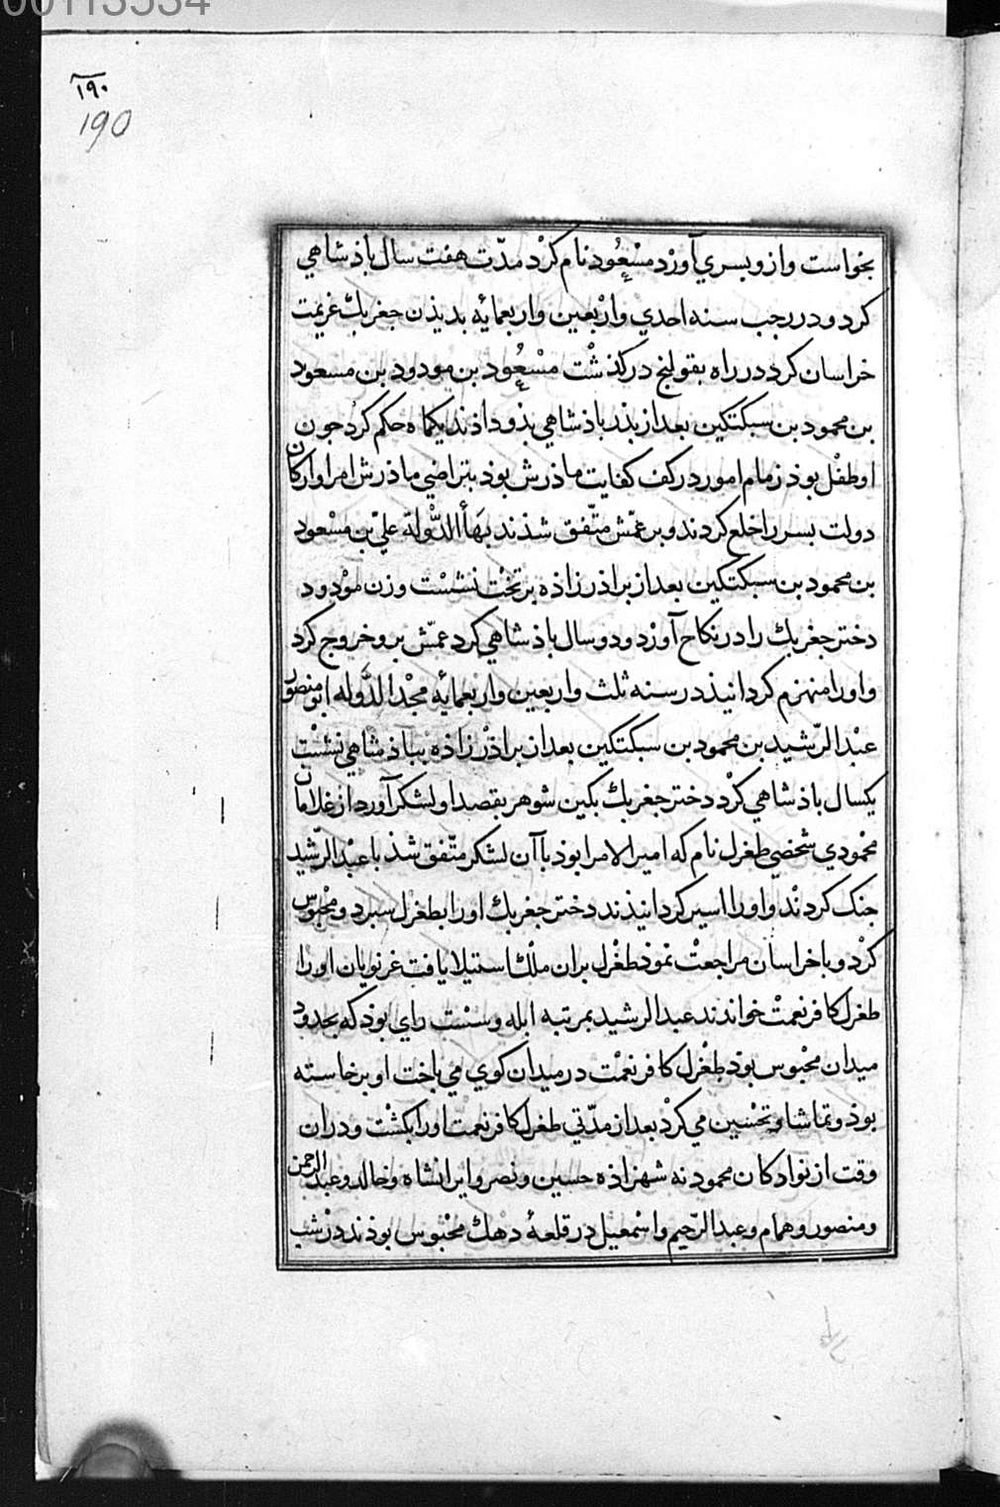 00113534
۱۹۰
190
بخواست وازو بسري آورد مسعُود نام كرد مدّت هفت سال باذشاهي
كرد و در رجب سنه احدي واربعين واربعمايه بديذن جغربك عزيمت
خراسان كرد در راه بقولنج دركذشت مسعُود بن مودود بن مسعود
بن محمود بن سبكتكين بعد از بذر باذشاهي بذو داذند يكماه حكم كرد جون
او طفل بوذ زمام امور در كف كفايت ماذرش بوذ بتراضي ماذرش امرا واركان
دولت بسر را خلع كردند و بر عمّش متّفق شذند بهَأ الدّولة عليّ بن مسْعود
بن محمود بن سبكتكين بعد از براذرزاذه بر تخت نشست وزن مودود
دختر جغربك را در نكاح آورد و دو سال باذشاهي كرد عمّش برو خروج كرد
و او را منهزم كردانيذ در سنه ثلث واربعين واربعمائه مجْد الدَّوله ابو منصور
عبْد الرّشيد بن محمود بن سبكتكين بعد از براذرزاذه بباذشاهي نشست
يكسال باذشاهي كرد دختر جغربك بكين شوهر بقصد او لشكر آورد از غلامان
محمودي شخصي طغرل نام كه امير الامرا بوذ با آن لشكر متّفق شذ با عبْد الرّشيد
جنك كردند و او را اسير كردانيذند دختر جغربك او را بطغرل سبرد و محْبوس
كرد و با خراسان مراجعت نموذ طغرل بران ملك استيلا يافت غزنويان او را
طغرل كافر نعمت خواندند عبد الرشيد بمرتبه ابله وسست راي بوذ كه بحدود
ميدان محْبوس بوذ طغرل كافر نعمت در ميدان كوي مي باخت او برخاسته
بوذ و تماشا و تحسين مي كرد بعد از مدّتي طغرل كافر نعمت او را بكشت و دران
وقت از نوادكان محمود نه شهزاذه حسين ونصر وايرانشاه وخالد وعبد الرحمن
ومنصور وهمام وعبد الرّحيم واسمعيل در قلعهٔ دهك محْبوس بوذند در شب